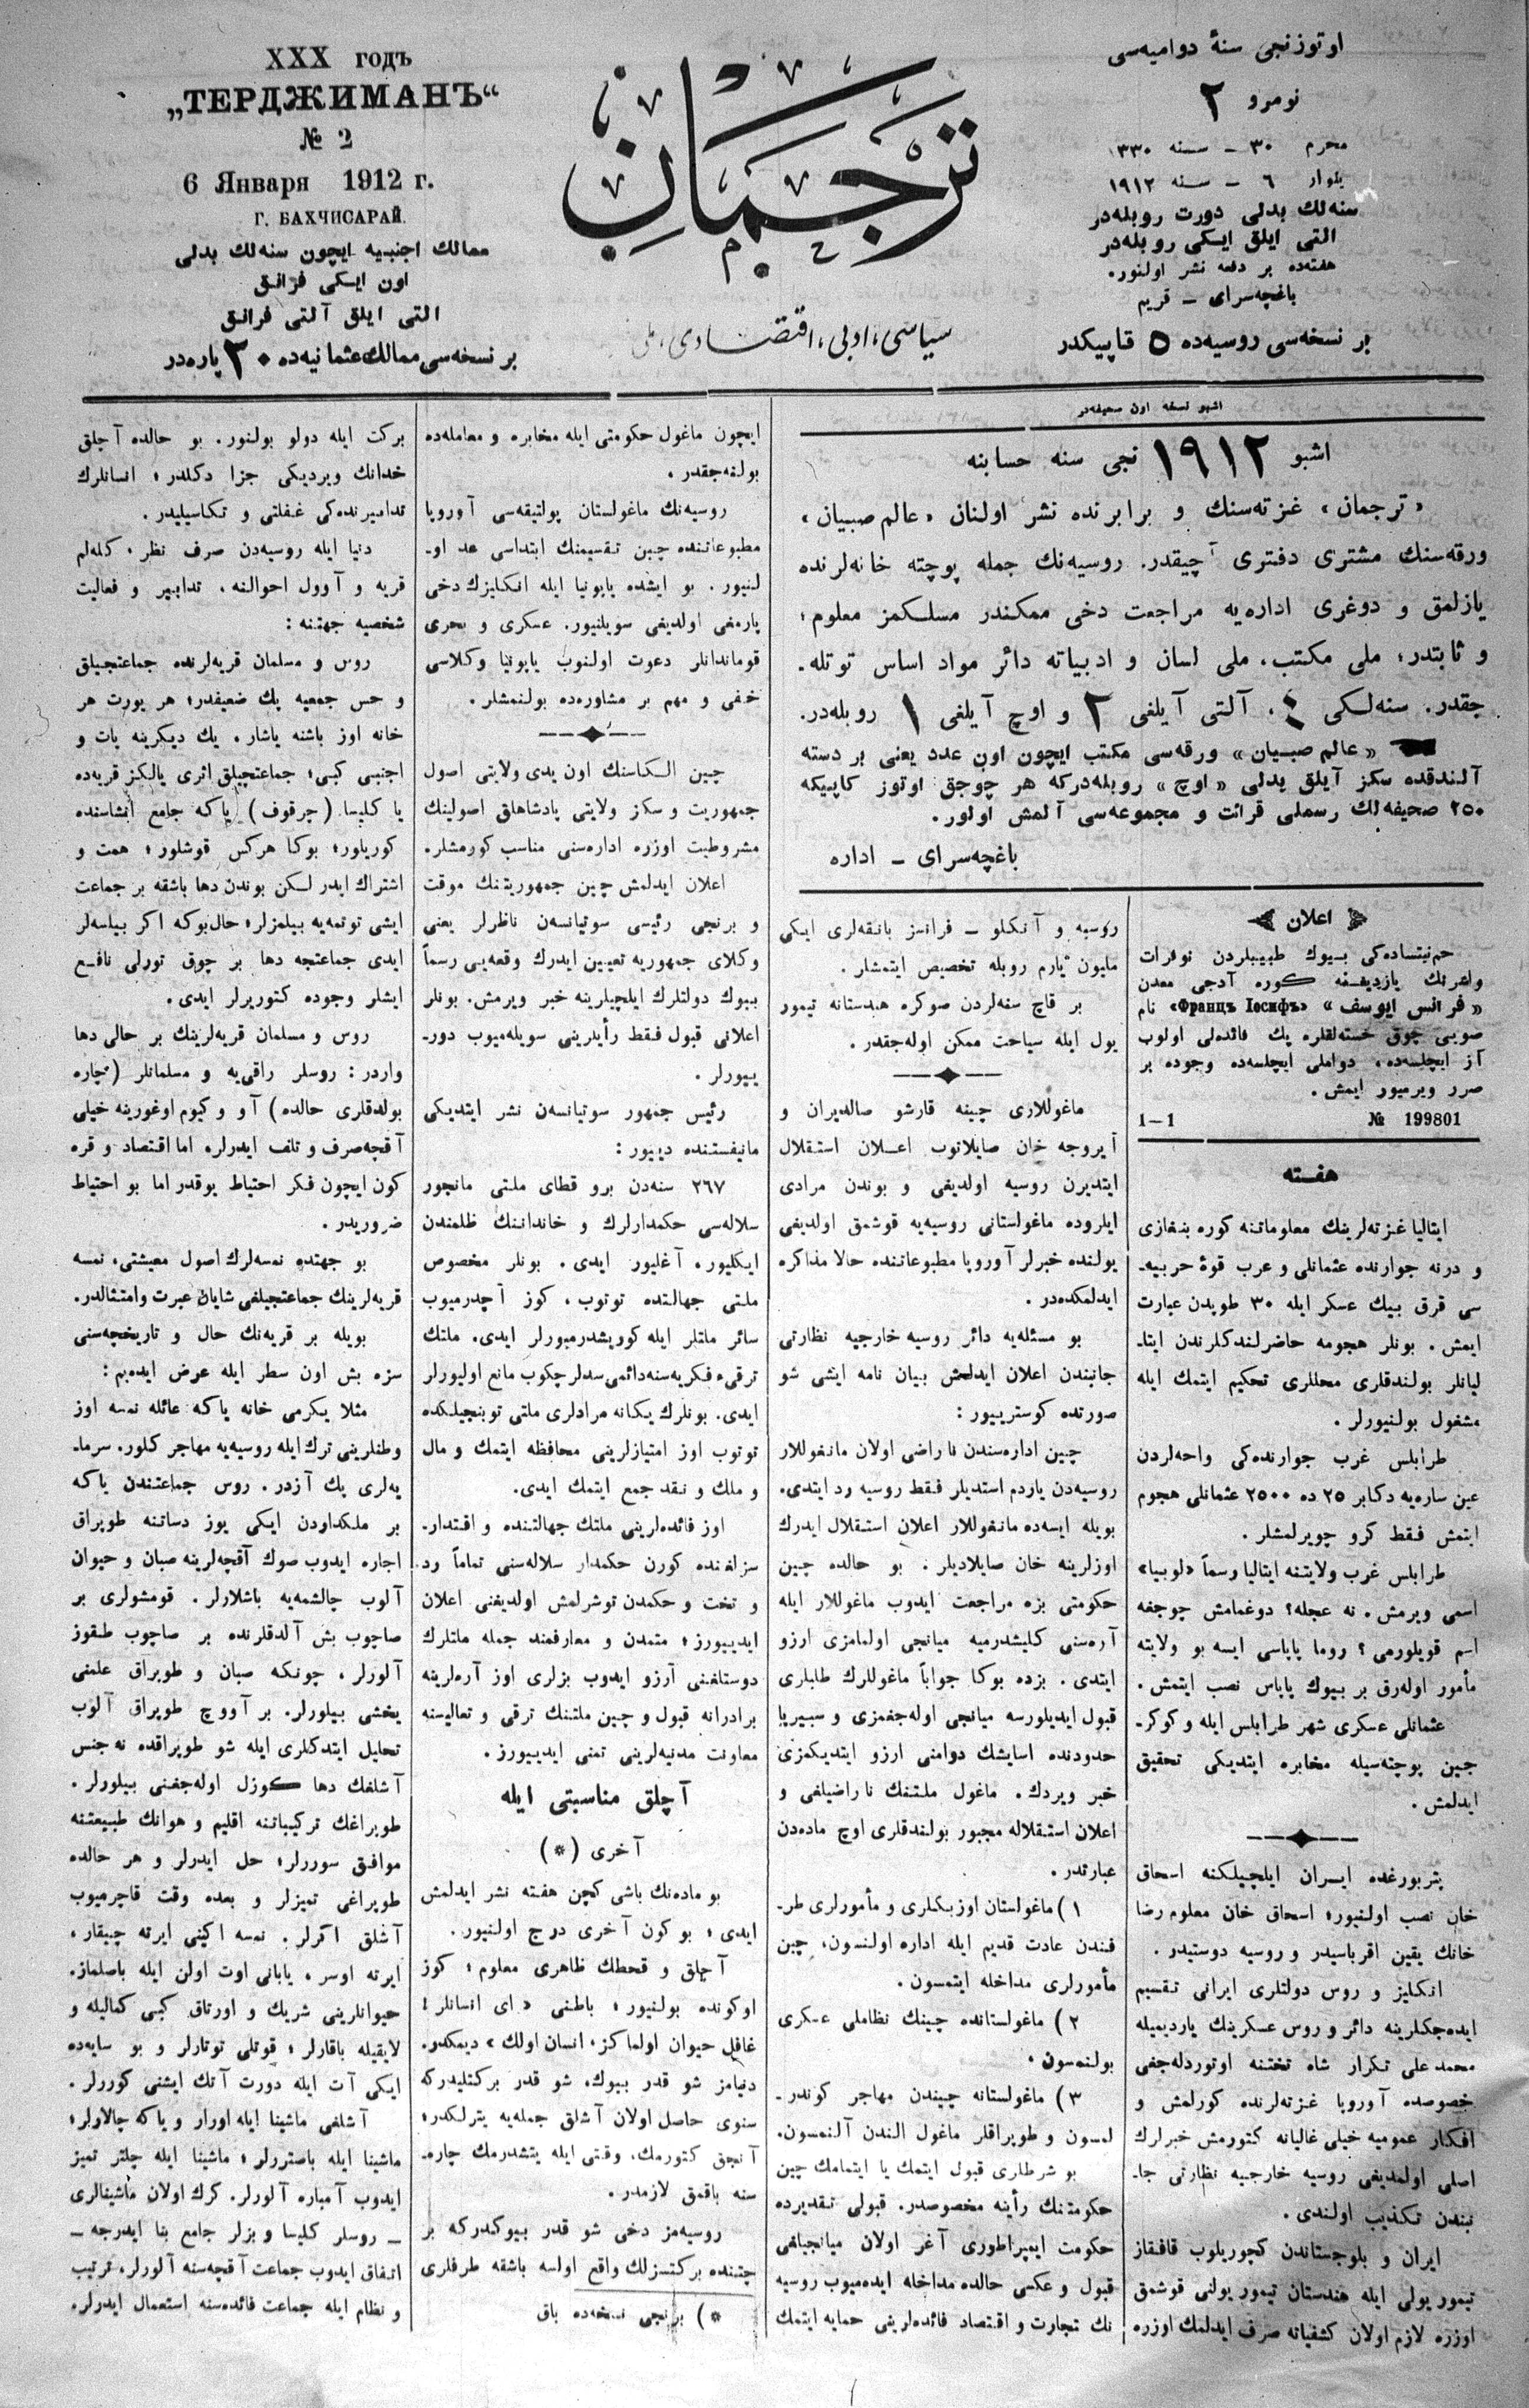 اوتوزنجی سنۀ دوامیه‌سی
نومرو ۲
محرم ۳۰ – سنه ۱۳۳۰
یلوار ٦ – سنه ۱۹۱۲
سنه‌لك بدلی دورت روبله‌در
التی ایلق ایكی روبله‌در
هفته‌ده بر دفعه نشر اولنور.
باغچه‌سرای – قریم
بر نسخه‌سی روسیه‌ده ٥ قاپیكدر
ترجمان
سیاسی، ادبی، اقتصادی، ملی
XXX годъ
„ТЕРДЖИМАНЪ“
№ 2
6 Января 1912 г.
Г. БАХЧИСАРАЙ.
ممالك اجنبیه ایچون سنه‌لك بدلی
اون ایكی فرانق
التی ایلق آلتی فرانق
بر نسخه‌سی ممالك عثمانیه‌ده ۳۰ پاره‌در
اشبو نسخه اون صحیفه‌در
اشبو ۱۹۱۲ نجی سنه حسابنه
«ترجمان» غزته‌سنك و برابرنده نشر اولنان «عالم صبیان»
ورقه‌سنك مشتری دفتری آچیقدر. روسیه‌نك جمله پوچته خانه‌لرنده
یازلمق و دوغری اداره‌یه مراجعت دخی ممكندر مسلكمز معلوم؛
و ثابتدر؛ ملی مكتب، ملی لسان و ادبیاته دائر مواد اساس توتله‌.
جقدر. سنه‌لكی ٤، آلتی آیلغی ۲ و اوچ آیلغی ۱ روبله‌در.
«عالم صبیان» ورقه‌سی مكتب ایچون اون عدد یعنی بر دسته
آلندقده سكز آیلق بدلی «اوچ» روبله‌دركه هر چوجق اوتوز كاپیكه
۲۵۰ صحیفه‌لك رسملی قرائت و مجموعه‌سی آلمش اولور.
باغچه‌سرای – اداره
اعلان
حم‌نیتساده‌كی بیوك طبیبلردن نوفرات
واشرنك یازدیغنه كوره آدجی معدن
«فرانس ایوسف» «Францъ Іосифъ» نام
صویی چوق خسته‌لقلره پك فائده‌لی اولوب
آز ایچلسه‌ده، دواملی ایچلسه‌ده وجوده بر
ضرر ویرمیور ایمش.
№ 199801 1–1
هفته
ایتالیا غزته‌لرینك معلوماتنه كوره بنغازی
و درنه جوارنده عثمانلی و عرب قوۀ حربیه‌-
سی قرق بیك عسكر ایله ۳۰ طوپدن عبارت
ایمش. بونلر هجومه حاضرلندكلرندن ایتا-
لیانلر بولندقلری محللری تحكیم ایتمك ایله
مشغول بولنیورلر.
طرابلس غرب جوارنده‌كی واحه‌لردن
عین ساره‌یه دكابر ۲۵ ده ۲۵۰۰ عثمانلی هجوم
ایتمش فقط كرو چویرلمشلر.
طرابلس غرب ولایتنه ایتالیا رسماً «لوبیا»
اسمی ویرمش. نه عجله؟ دوغمامش چوجغه
اسم قویلورمی؟ روما پاپاسی ایسه بو ولایته
مأمور اوله‌رق بر بیوك پاپاس نصب ایتمش.
عثمانلی عسكری شهر طرابلس ایله و كوكر-
جین پوچته‌سیله مخابره ایتدیكی تحقیق
ایدلمش.
پتربورغده ایران ایلچیلكنه اسحاق
خان نصب اولنیور؛ اسحاق خان معلوم رضا
خانك یقین اقرباسیدر و روسیه دوستیدر.
انكلیز و روس دولتلری ایرانی تقسیم
ایده‌جكلرینه دائر و روس عسكرینك یاردیمیله
محمد علی تكرار شاه تختنه اوتوردله‌جغی
خصوصده آوروپا غزته‌لرنده كورلمش و
افكار عمومیه خیلی غالیانه كتورمش خبرلرك
اصلی اولمدیغی روسیه خارجیه نظارتی جا-
نبندن تكذیب اولندی.
ایران و بلوجستاندن كچوریلوب قافقاز
تیمور یولی ایله هندستان تیمور یولنی قوشمق
اوزره لازم اولان كشفیاته صرف ایدلمك اوزره
روسیه و آنكلو – فرانسز بانقه‌لری ایكی
ملیون یارم روبله تخصیص ایتمشلر.
بر قاچ سنه‌لردن صوكره هندستانه تیمور
یول ایله سیاحت ممكن اوله‌جقدر.
ماغوللاری چینه قارشو صالدیران و
آیروجه خان صایلانوب اعلان استقلال
ایتدیرن روسیه اولدیغی و بوندن مرادی
ایلروده ماغولستانی روسیه‌یه قوشمق اولدیغی
یولنده خبرلر آوروپا مطبوعاتنده حالا مذاكره
ایدلمكده‌در.
بو مسئله‌یه دائر روسیه خارجیه نظارتی
جانبندن اعلان ایدلمش بیان نامه ایشی شو
صورتده كوسترییور:
چین اداره‌سندن ناراضی اولان مانغوللار
روسیه‌دن یاردم استدیلر فقط روسیه رد ایتدی.
بویله ایسه‌ده مانغوللار اعلان استقلال ایدرك
اوزلرینه خان صایلادیلر. بو حالده چین
حكومتی بزه مراجعت ایدوب ماغوللار ایله
آره‌سنی كلیشدرمیه میانجی اولمامزی ارزو
ایتدی. بزده بوكا جواباً ماغوللرك طلبلری
قبول ایدیلورسه میانجی اوله‌جغمزی و سیبریا
حدودنده اسایشك دوامنی ارزو ایتدیكمزی
خبر ویردك. ماغول ملتنك ناراضیلغی و
اعلان استقلاله مجبور بولندقلری اوچ ماده‌دن
عبارتدر.
۱) ماغولستان اوز بكلری و مأمورلری طر-
فندن عادت قدیم ایله اداره اولنسون، چین
مأمورلری مداخله ایتمسون.
۲) ماغولستانده چینك نظاملی عسكری
بولنمسون.
۳) ماغولستانه چیندن مهاجر كوندر-
لمسون و طوپراقلر ماغول الندن آلنمسون.
بو شرطلری قبول ایتمك یا ایتمامك چین
حكومتنك رأینه مخصوصدر. قبولی تقدیرده
حكومت ایمپراطوری آغر اولان میانجیلغی
قبول و عكسی حالده مداخله ایده‌میوب روسیه
نك تجارت و اقتصاد فائده‌لرینی حمایه ایتمك
ایچون ماغول حكومتی ایله مخابره و معامله‌ده
بولنه‌جقدر.
روسیه‌نك ماغولستان پولتیقه‌سی آوروپا
مطبوعاتنده چین تقسیمنك ابتداسی عد او-
لنیور. بو ایشده یاپونیا ایله انكلیزك دخی
پارمغی اولدیغی سویلنیور. عسكری و بحری
قوماندانلر دعوت اولنوب یاپونیا وكلاسی
خفی و مهم بر مشاوره‌ده بولنمشلر.
چین الكاسنك اون یدی ولایتی اصول
جمهوریت و سكز ولایتی پادشاهلق اصولینك
مشروطیت اوزره اداره‌سنی مناسب كورمشلر.
اعلان ایدلمش چین جمهوریتنك موقت
و برنجی رئیسی سوتیانسن ناظرلر یعنی
وكلای جمهوریه تعیین ایدرك وقعه‌یی رسماً
بیوك دولتلرك ایلچیلرینه خبر ویرمش. بونلر
اعلانی قبول فقط رأیدرینی سویله‌میوب دور-
ییورلر.
رئیس جمهور سوتیانسن نشر ایتدیكی
مانیفستنده دییور:
۲٦۷ سنه‌دن برو قطای ملتی مانچور
سلاله‌سی حكمدارلرك و خاندانینك ظلمندن
ایكلیور، آغلیور ایدی. بونلر مخصوص
ملتی جهالتده توتوب، كوز آچدرمیوب
سائر ملتلر ایله كوریشدرمیورلر ایدی. ملتك
ترقیء فكریه‌سنه دائمی سدلر چكوب مانع اولیورلر
ایدی. بونلرك یكانه مرادلری ملتی توبنجیلكده
توتوب اوز امتیازلرینی محافظه ایتمك و مال
و ملك و نقد جمع ایتمك ایدی.
اوز فائده‌لرینی ملتك جهالتنده و اقتدار-
سزلغنده كورن حكمدار سلاله‌سنی تماماً رد
و تخت و حكمدن توشرلمش اولدیغنی اعلان
ایدییورز؛ متمدن و معارفمند جمله ملتلرك
دوستلغنی آرزو ایدوب بزلری اوز آره‌لرینه
برادرانه قبول و چین ملتنك ترقی و تعالیسنه
معاونت مدنیه‌لرینی تمنی ایدییورز.
آچلق مناسبتی ایله
آخری (*)
بو ماده‌نك باشی كچن هفته نشر ایدلمش
ایدی؛ بو كون آخری درج اولنیور.
آچلق و قحطك ظاهری معلوم؛ كوز
اوكونده بولنیور؛ باطنی «ای انسانلر!
غافل حیوان اولماكز، انسان اولك» دیمكدر.
دنیامز شو قدر بیوك، شو قدر بركتلیدركه
سنوی حاصل اولان آشلق جمله‌یه یترلكدر؛
آنجق كتورمك، وقتی ایله یتشدرمك چاره‌-
سنه باقمق لازمدر.
روسیه‌مز دخی شو قدر بیوكدركه بر
جتنده بركتسزلك واقع اولسه باشقه طرفلری
*) برنجی نسخه‌ده باق
بركت ایله دولو بولنور. بو حالده آچلق
خدانك ویردیكی جزا دكلدر؛ انسانلرك
تدامیرنده‌كی غفلتی و تكاسیلیدر.
دنیا ایله روسیه‌دن صرف نظر، كله‌لم
قریه و آوول احوالنه، تدابیر و فعالیت
شخصیه جهتنه:
روس و مسلمان قریه‌لرنده جماعتجیلق
و حس جمعیه پك ضعیفدر؛ هر یورت هر
خانه اوز باشنه یاشار. یك دیكرینه یات و
اجنبی كبی؛ جماعتجیلق اثری یالكز قریه‌ده
یا كلیسا (چرقوف) یاكه جامع انشاسنده
كوریلور؛ بوكا هركس قوشلور؛ همت و
اشتراك ایدر لكن بوندن دها باشقه بر جماعت
ایشی توتمه‌یه بیلمزلر؛ حال بوكه اكر بیلسه‌لر
ایدی جماعتجه دها بر چوق تورلی نافع
ایشلر وجوده كتوریرلر ایدی.
روس و مسلمان قریه‌لرینك بر حالی دها
واردر: روسلر راقی‌یه و مسلمانلر (چاره
بولدقلری حالده) آو و كیوم اوغورینه خیلی
آقچه صرف و تلف ایدرلر، اما اقتصاد و قره
كون ایچون فكر احتیاط یوقدر اما بو احتیاط
ضروریدر.
بو جهتده نمسه‌لرك اصول معیشتی، نمسه
قریه‌لرینك جماعتجیلغی شایان عبرت وامتثالدر.
بویله بر قریه‌نك حال و تاریخچه‌سنی
سزه بش اون سطر ایله عرض ایده‌یم:
مثلا یكرمی خانه یاكه عائله نمسه اوز
وطنلرینی ترك ایله روسیه‌یه مهاجر كلور. سرما-
یه‌لری پك آزدر. روس جماعتندن یاكه
بر ملكداردن ایكی یوز دساتنه طوپراق
اجاره ایدوب صوك آقچه‌لرینه صبان و حیوان
آلوب چالشمه‌یه باشلارلر. قومشولری بر
صاچوب بش آلدقلرنده بر صاچوب طقوز
آلورلر، چونكه صبان و طوپراق علمنی
یخشی بیلورلر. بر آووچ طوپراق آلوب
تحلیل ایتدكلری ایله شو طوپراقده نه جنس
آشلغك دها كوزل اوله‌جغنی بیلورلر.
طوپراغك تركیباتنه اقلیم و هوانك طبیعتنه
موافق سوررلر؛ حل ایدرلر و هر حالده
طوپراغی تمیزلر و بعده وقت قاچرمیوب
آشلق اكرلر. نمسه اكینی ایرته چیقار،
ایرته اوسر، یابانی اوت اولن ایله باصلماز.
حیوانلرینی شریك و اورتاق كبی كمالیله و
لایقیله باقارلر؛ قوتلی توتارلر و بو سایه‌ده
ایكی آت ایله دورت آتك ایشنی كوررلر.
آشلغی ماشینا ایله اورار و یاكه چالاولر؛
ماشینا ایله باصتررلر؛ ماشینا ایله چلتر تمیز
ایدوب آمباره آلورلر. كرك اولان ماشینالری
– روسلر كلیسا و بزلر جامع بنا ایدرجه –
اتفاق ایدوب جماعت آقچه‌سنه آلورلر، ترتیب
و نظام ایله جماعت فائده‌سنه استعمال ایدرلر.